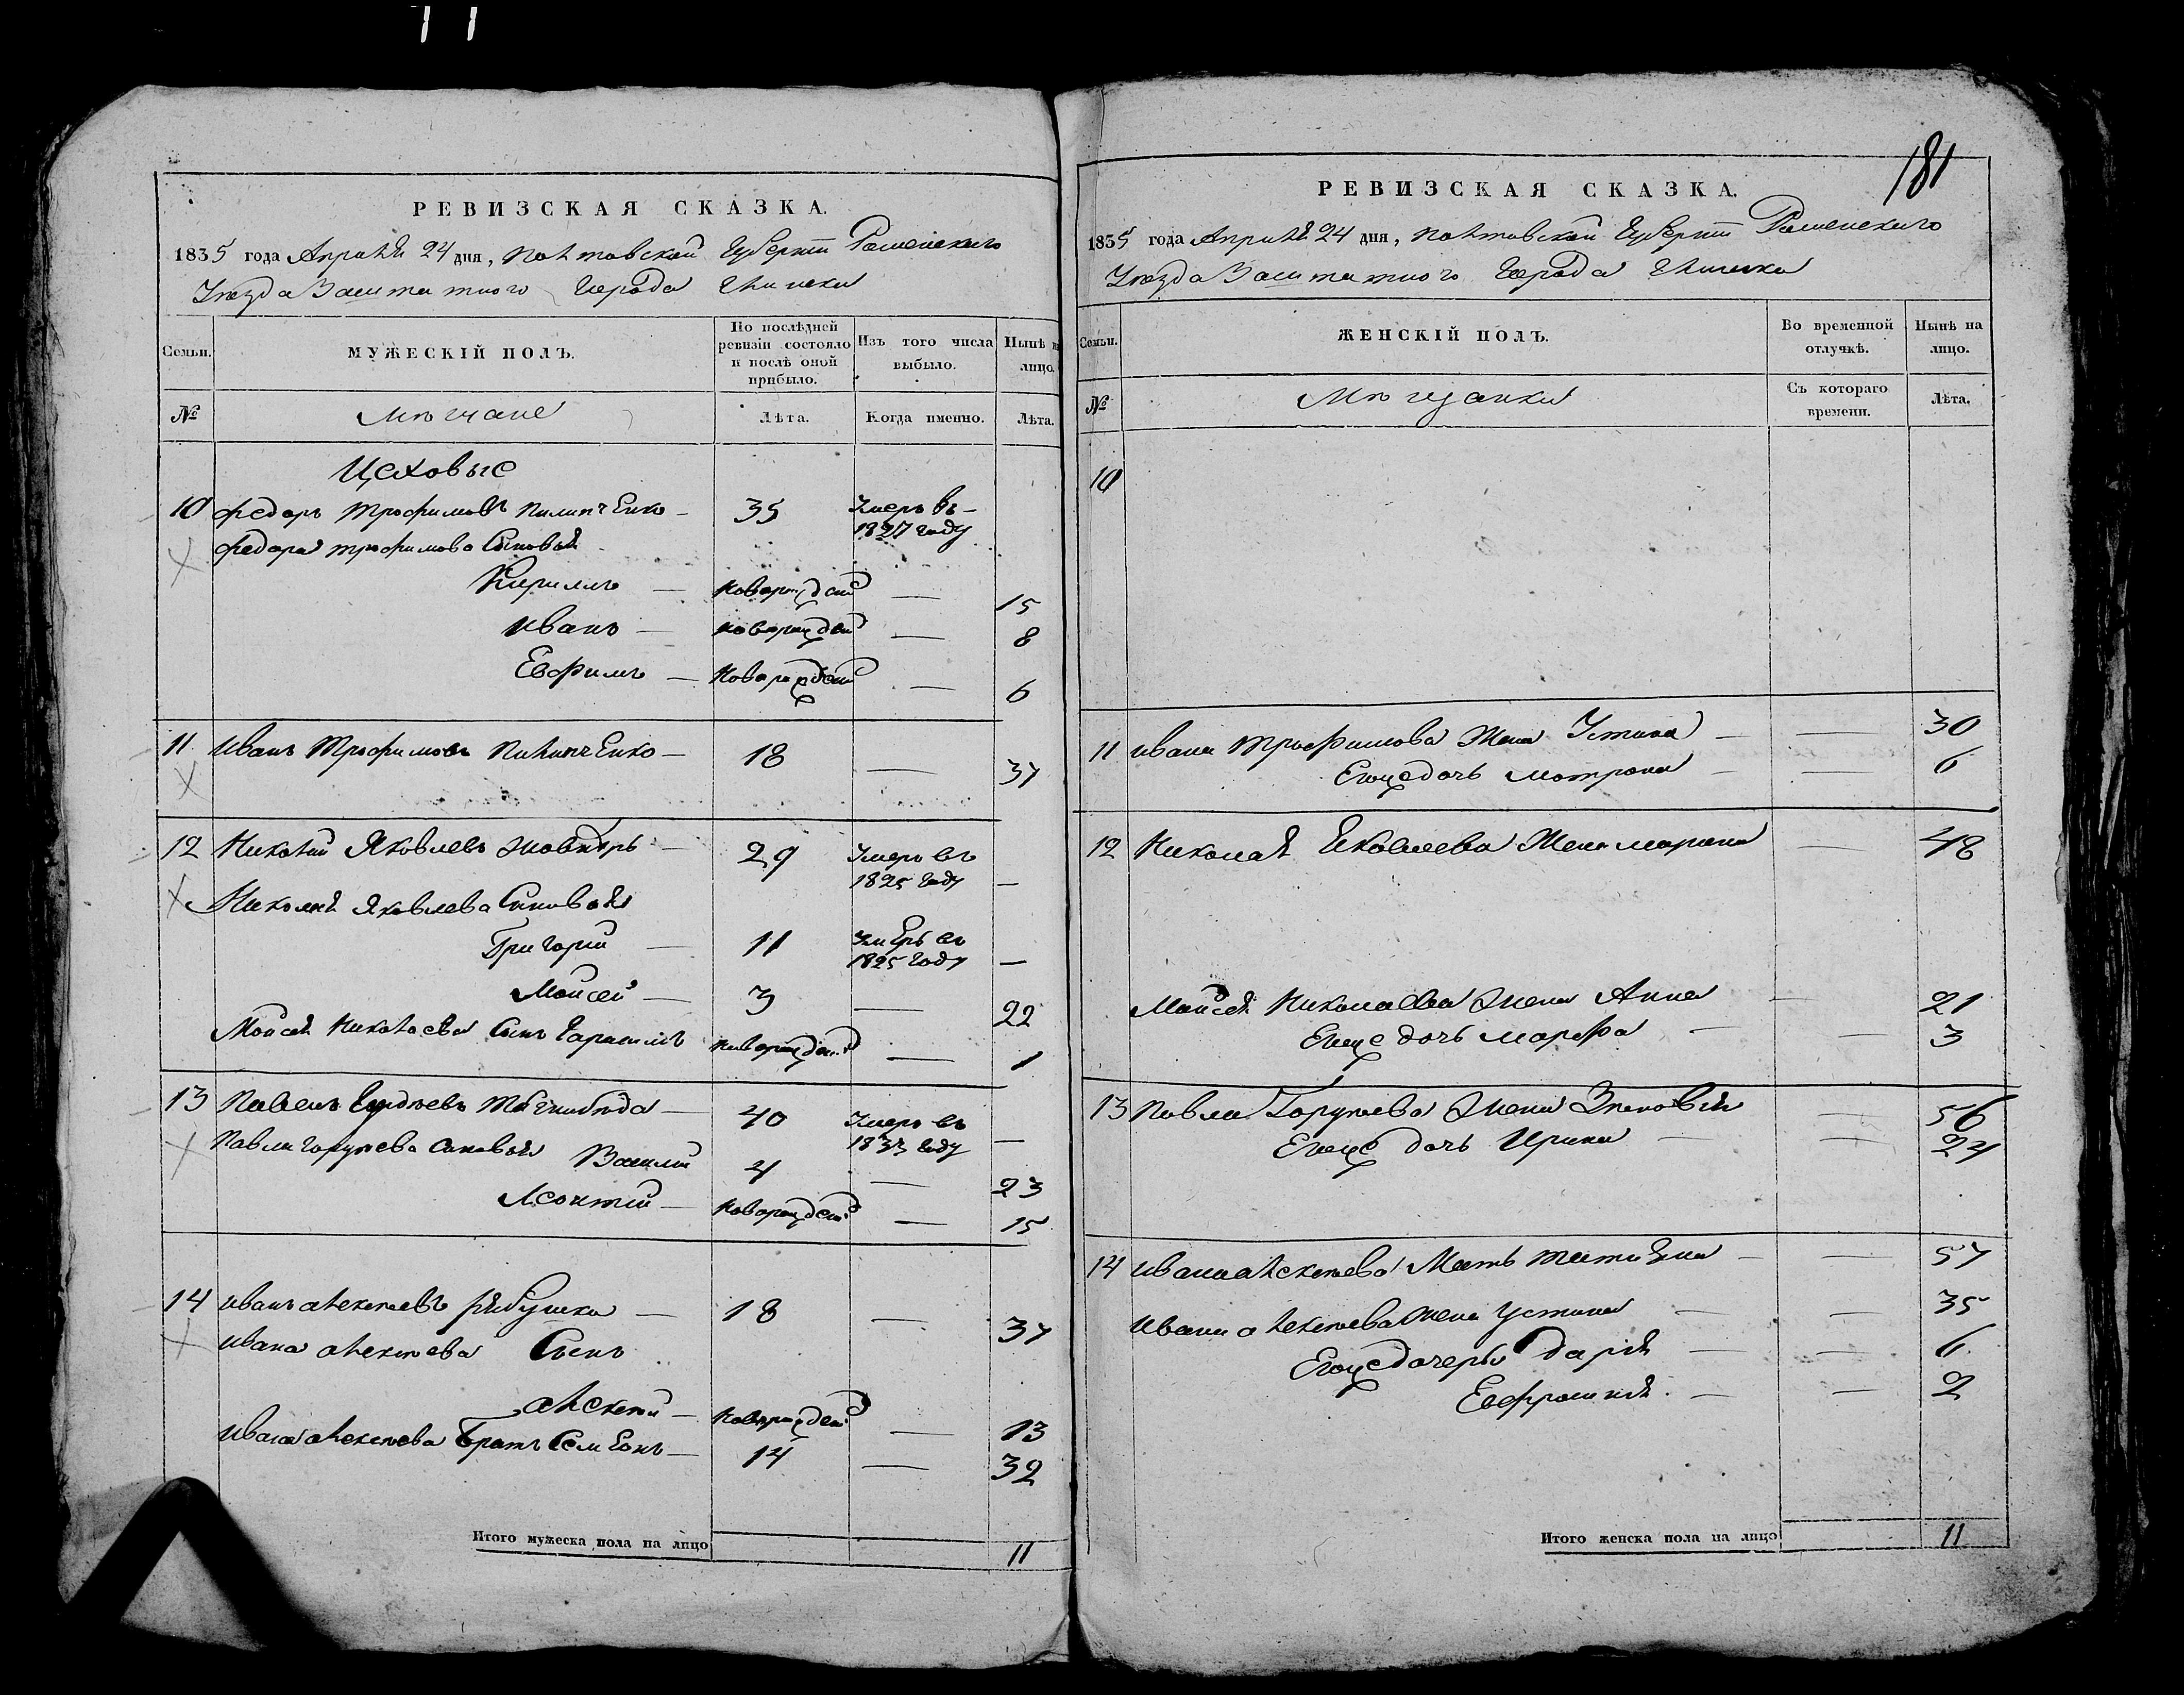 РЕВИЗСКАЯ СКАЗКА.
1835 года Апреля 24 дня, Полтавской Губернии Роменскаго
Уезда Заштатного Города Глинска
Семьи.
МУЖЕСКІЙ ПОЛЪ.
По послѣдней ревизіи состояло и послѣ оной прибыло.
Изъ того числа выбыло.
Нынѣ на лицо.
№
Мѣщане
Лѣта.
Когда именно.
Лѣта.
Цеховые
10 Федоръ Трофимовъ Пилипченко — 35 Умеръ въ — 1827 году
Федора Трофимова Сыновья
Кирилъ — новорожден — 15
Иванъ — новорожден — 8
Евфимъ — новорожден — 6
11 Иванъ Трофимовъ Пилипченко — 18 — 37
12 Николай Яковлевъ — 29 Умеръ въ 1825 году —
Николая Яковлева Сыновья
Григорий — 11 Умеръ въ 1825 году —
Моисей — 3 — 22
Моисея Николаева Сынъ Герасимъ новорожден — 1
13 Павелъ Гордѣевъ — 40 Умеръ въ году —
Павла Гордѣева Сыновья Василий 4 — 23
Леонтий — новорожден — 15
14 Иванъ Алексѣевъ Рябушка — 18 — 37
Ивана Алексѣева Сынъ
Алексѣй — новорожден — 13
Ивана Алексѣева Братъ Семенъ — 14 — 32
Итого мужеска пола на лицо 11
181
РЕВИЗСКАЯ СКАЗКА.
1835 года Апреля 24 дня, Полтавской Губернии Роменскаго
Уезда Заштатного Города Глинска
Семьи.
ЖЕНСКІЙ ПОЛЪ.
Во временной отлучкѣ.
Нынѣ на лицо.
№
Мѣщанки
Съ котораго времени.
Лѣта.
10
11 Ивана Трофимова Жена Устина — — 30
Егоже дочь Мотрона — — 6
12 Николая Яковлева Жена Марина — 48
Моисея Николаева Жена Анна — 21
Егоже дочь Марфа — — 3
13 Павла Гордѣева Жена Зиновья — 56
Егоже дочь Ирина — — 24
14 Ивана Алексѣева Мать Татияна — — 57
Ивана Алексѣева Жена Устина — — 35
Егоже дочери Дарія — — 6
Евфросинія — — 2
Итого женска пола на лицо 11